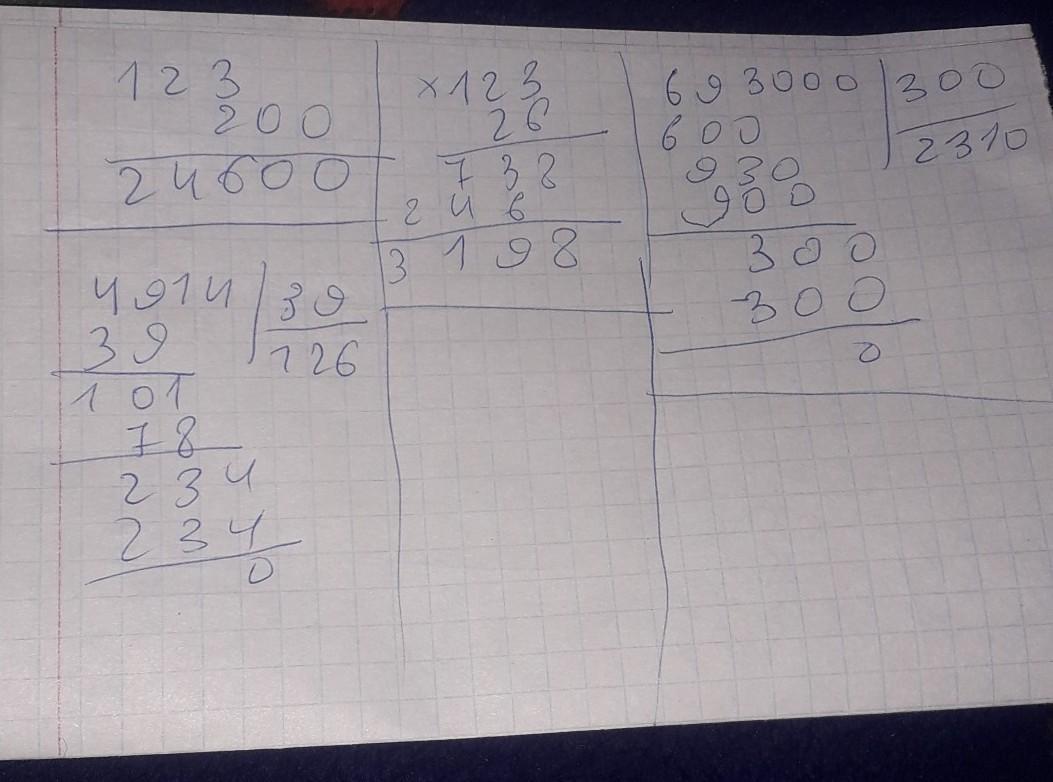 123
200
24600
×123
26
738
246
3198
693000 300
600 2310
930
900
300
300
0
4914 39
39 126
101
78
234
234
0